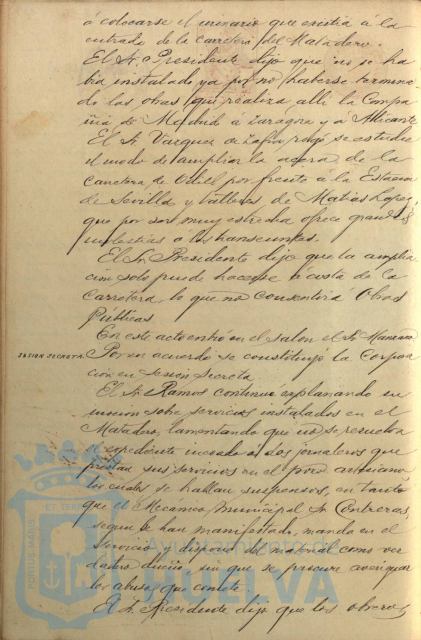 á colocarse el urinario que existia á la
entrada de la Carretera del Matadero.
El Sr. Presidente dijo que no se ha
bia instalado ya por no haberse termina
do las obras que realiza alli la Compa
ñia de Madrid á Zaragoza y á Alicante
El Sr. Vazquez de Zafra rogó se estudie
el modo de ampliar la acera de la
Carretera de Odiel por frente á la Estacion
de Sevilla y talleres de Matias Lopez,
que por ser muy estrecha ofrece grandes
molestias a los transeuntes.
El Sr. Presidente dijo que la amplia
cion solo puede hacerse á costa de la
Carretera, lo que no consentirá Obras
Públicas
En este acto entró en el salon el Sr. Manzano
SESION SECRETA. Por un acuerdo se constituyó la Corpora
cion en Sesion Secreta.
El Sr. Ramos continuó explanando su
mocion sobre servicios instalados en el
Matadero, lamentando que no se resuelva
el expediente incoado a dos jornaleros que
prestan sus servicios en el pozo artesiano
los cuales se hallan suspensos, en tanto
que el Mecanico Municipal Sr. Contreras,
segun le han manifestado, manda en el
Servicio y dispone del material como ver
dadero dueño, sin que se procure averiguar
los abusos que comete.
El Sr. Presidente dijo que los obreros
PORTUS MARIS
ET TERRAE
Ayuntamiento de
HUELVA